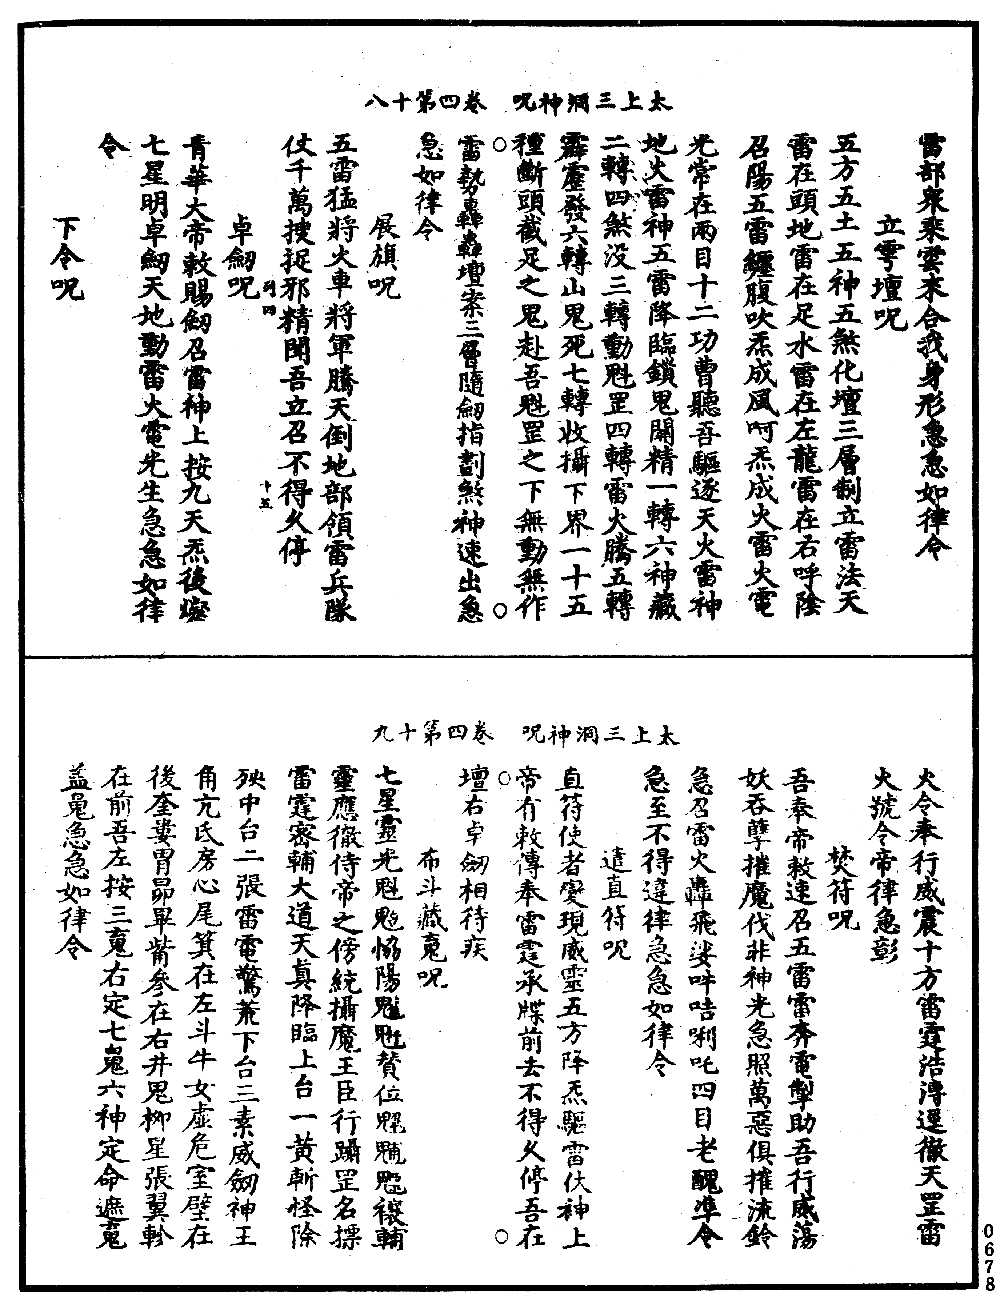 太上三洞神呪　卷四第十八
雷部衆乘雲來合我身形急急如律令
立雩壇呪
五方五土五神五煞化壇三層制立雷法天
雷在頭地雷在足水雷在左龍雷在右呼陰
召陽五雷纏腹吹炁成風呵炁成火雷火電
光常在兩目十二功曹聽吾驅逐天火雷神
地火雷神五雷降臨鎖鬼開精一轉六神藏
二轉四煞没三轉動魁罡四轉雷火騰五轉
霹靂發六轉山鬼死七轉收攝下界一十五
種斷頭截足之鬼赴吾魁罡之下無動無作
雷勢轟轟壇案三層隨劒指劃煞神速出急
急如律令
展旗呪
五雷猛將火車將軍騰天倒地部領雷兵隊
仗千萬搜捉邪精聞吾立召不得久停
卓劒呪
青華大帝敕賜劒召雷神上按九天炁後燦
七星明卓劒天地動雷火電光生急急如律
令
下令呪
太上三洞神呪　卷四第十九
火令奉行威震十方雷霆浩溥遝徹天罡雷
火號令帝律急彰
焚符呪
吾奉帝敕速召五雷雷奔電掣助吾行威蕩
妖吞孽摧魔伐非神光急照萬惡俱摧流鈴
急召雷火轟飛娑吽咭唎吒四目老醜準令
急至不得違律急急如律令
遣直符呪
直符使者變現威靈五方降炁驅雷伏神上
帝有敕傳奉雷霆承牒前去不得久停吾在
壇右卓劒相待疾
布斗藏䰟呪
七星靈光魁𩲃協陽贊位禳輔
靈應徹侍帝之傍統攝魔王臣行躡罡名摽
雷霆密輔大道天眞降臨上台一黄斬怪除
殃中台二張雷電驚蒐下台三素威劒神王
角亢氐房心尾箕在左斗牛女虛危室壁在
後奎婁胃昴畢觜參在右井鬼柳星張翼軫
在前吾左按三䰟右定七䰟六神定命遮䰟
蓋䰟急急如律令
0678